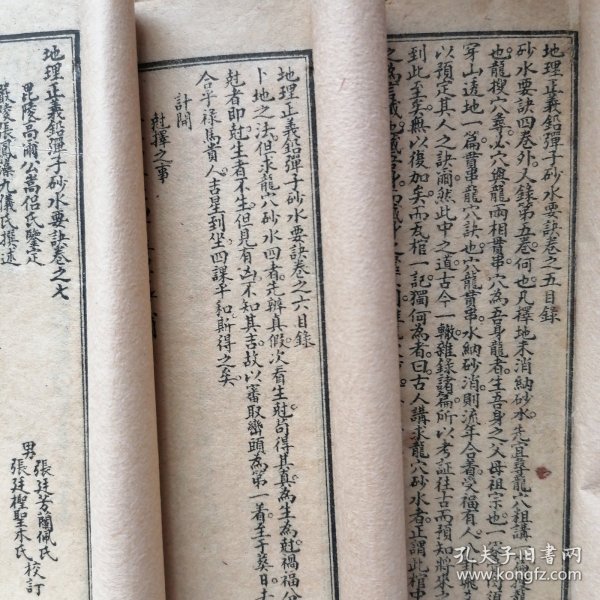 地理正義鉛彈子砂水要訣卷之五目錄
砂水要訣四卷外又錄第五卷何也凡擇地未消納砂水先宜尋龍穴粗講
也龍搜穴尋必穴與龍兩相貫串穴為吾身龍者生吾身之父母祖宗也一
穿山透地一篇貫串龍穴訣也穴龍貫串水納砂消則流年令吾者受福有人
以預定其人之訣爾然此中之道古今一轍雜錄諸篇所以考証往古而預知將來之
到此至矣無以復加矣而友棺一記獨何為者曰古人講求龍穴砂水者正謂此棺中
地理正義鉛彈子砂水要訣卷之六目錄
卜地之法但求龍穴砂水四者先辨真假次看生尅苟得其真為生為尅禍福
尅者即尅生者不生但見有凶不知其吉故以審取巒頭為第一着
合乎祿馬貴人吉星到坐四課平和斯得之矣
計開
尅擇之事
地理正義鉛彈子砂水要訣卷之七
毘陵高爾公嵩侶氏鑒定
嚴陵張鳳藻九儀氏撰述
男
張廷芳蘭佩氏
張廷樫聖木氏
校訂
孔夫子旧书网
www.kongfz.com